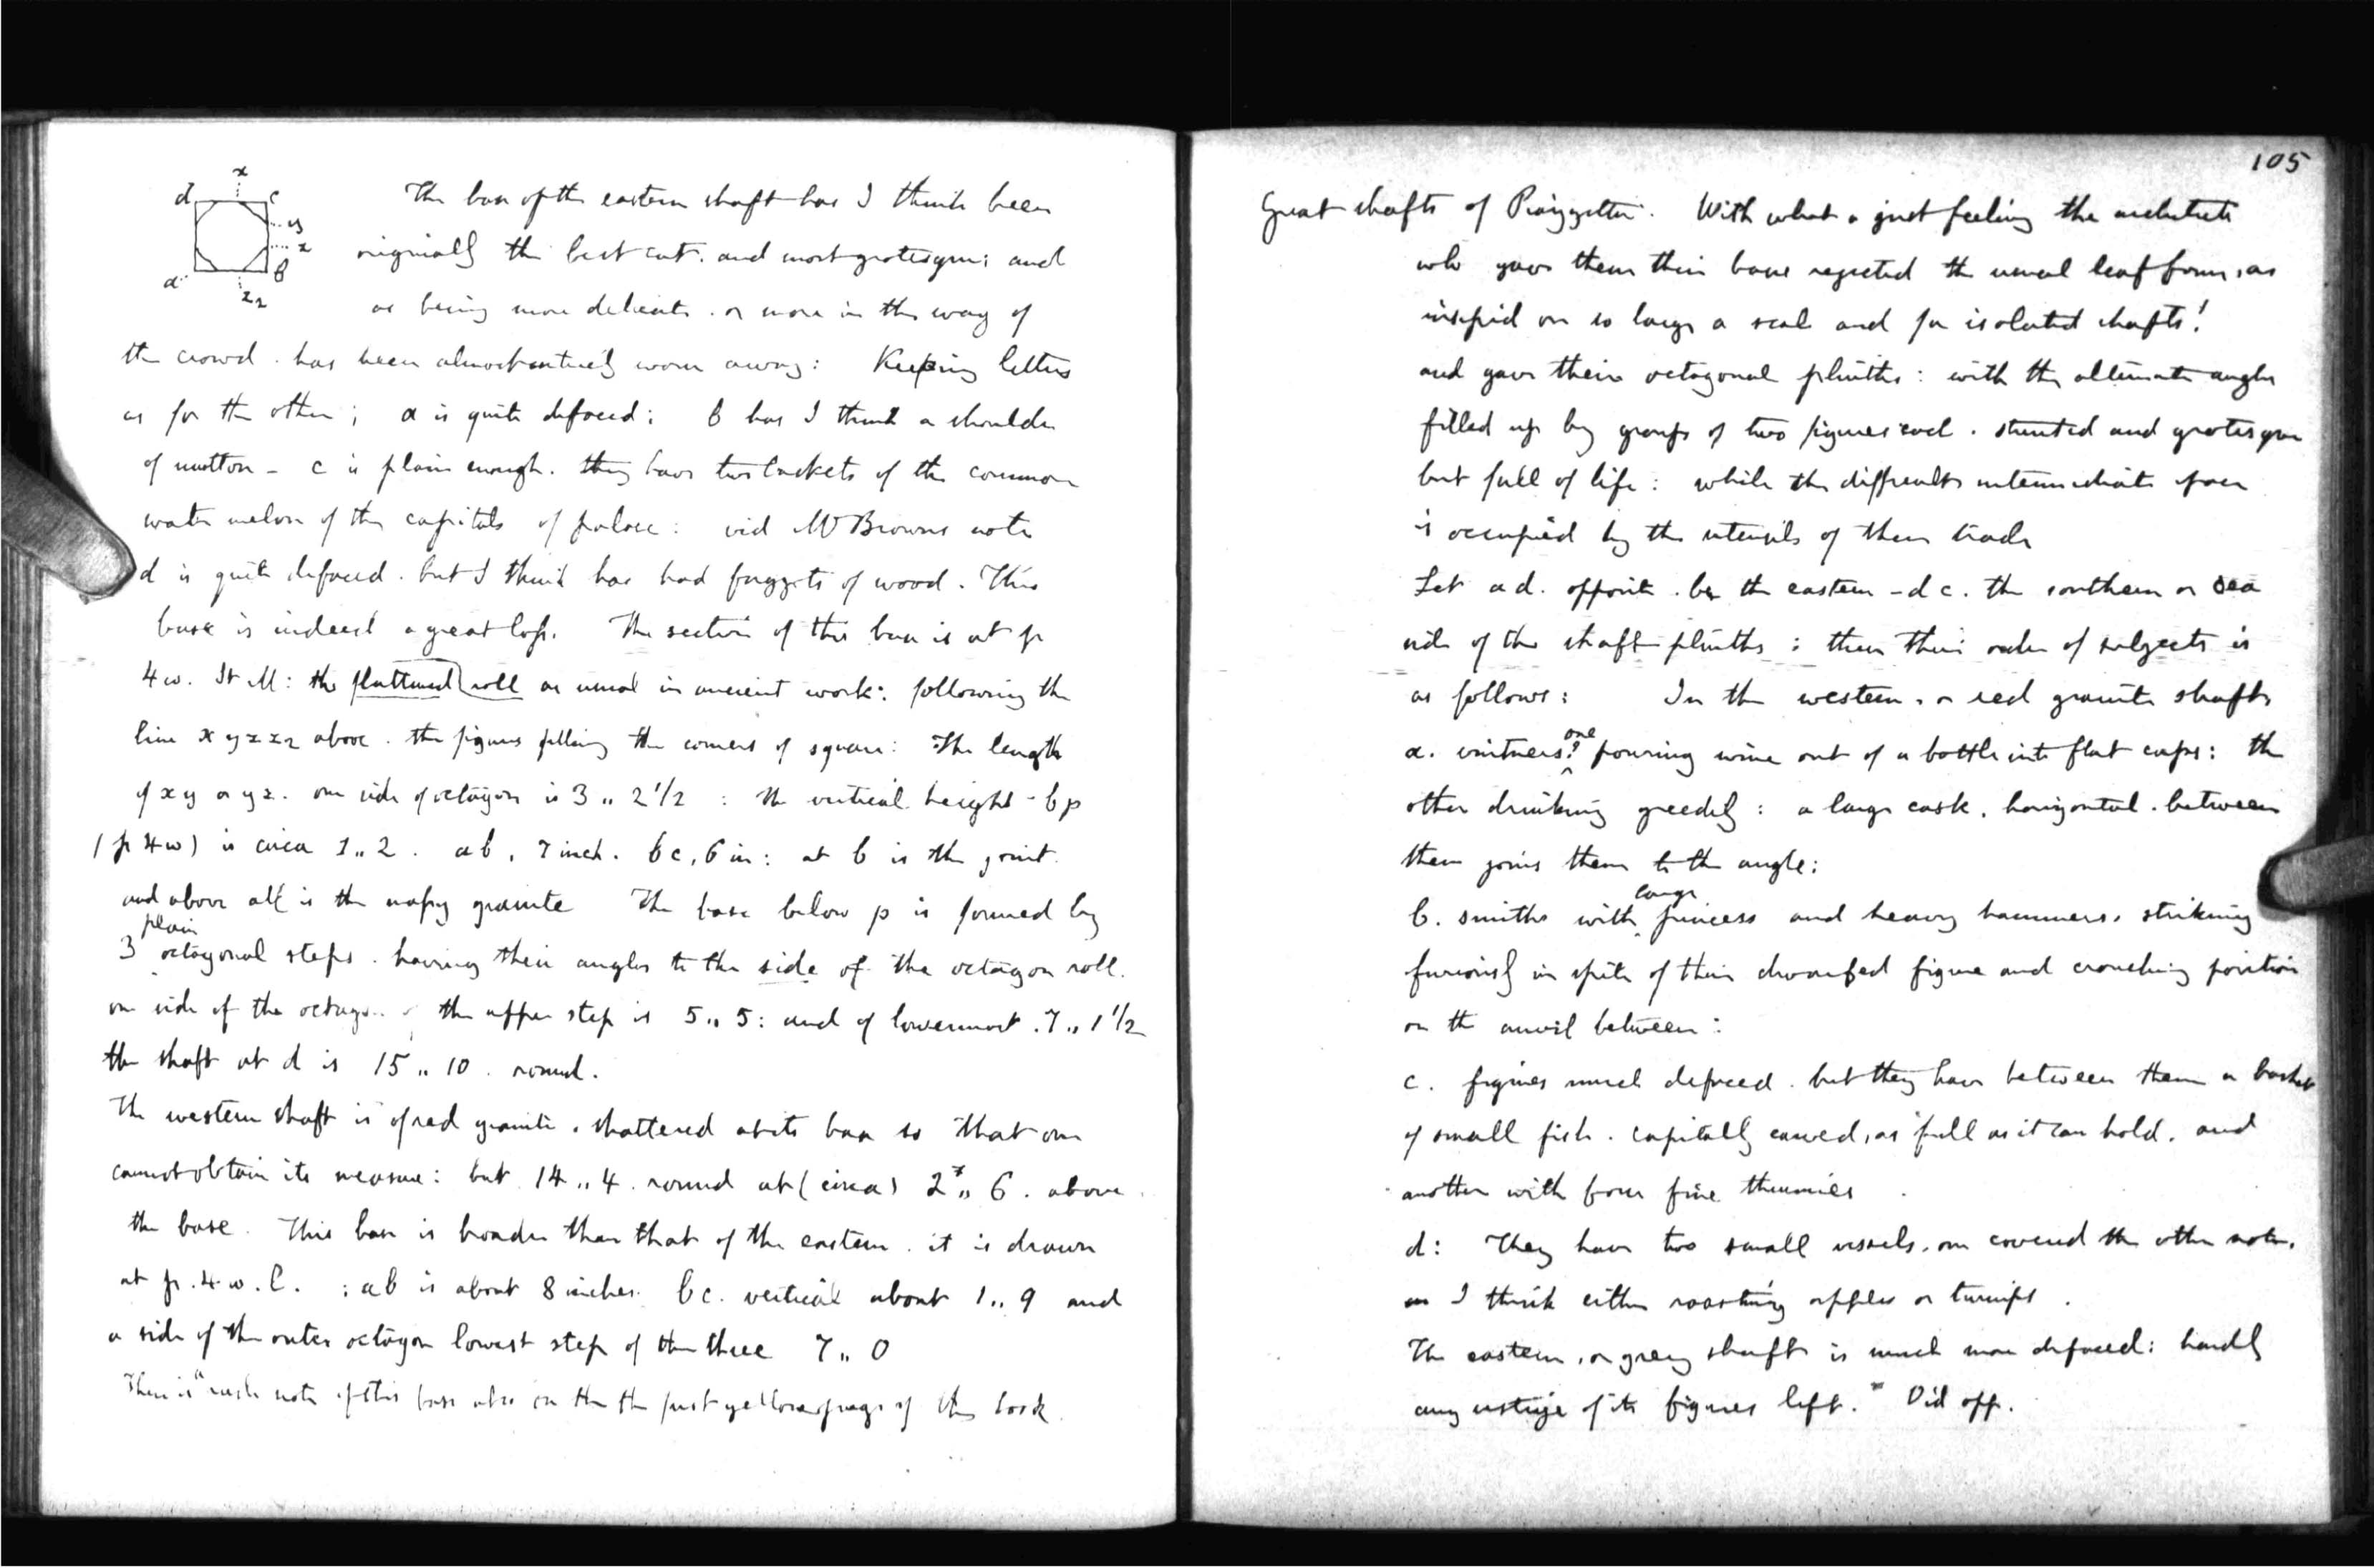 x
d c
y
z
a b
z2
The base of the eastern shaft has I think been
originally the best cut. and most grotesque; and
as being more delicate. or more in the way of
the crowd. has been almost entirely worn away: Keeping letters
as for the other; a is quite defaced: b has I think a shoulder
of mutton - c is plain enough. they have two baskets of the common
water melon of the capitals of palace: vid Mr Browns note
d is quite defaced. but I think has had faggots of wood. This
base is indeed a great loss. The section of this base is at p
4w. St M: the flattened roll as usual in ancient work: following the
line x y z z2 above. the figures filling the corners of square: The length
of xy or yz. one side of octagon is 3 ,, 2 1/2 : the vertical height - bp
(p 4w) is circa 1 ,, 2. ab, 7 inch. bc, 6 in: at b is the joint.
and above all is the granite The base below p is formed by
plain
3 octagonal steps. having their angles to the side of the octagon roll.
one side of the octagon of the upper step is 5 ,, 5: and of lowermost. 7 ,, 1 1/2
the shaft at d is 15 ,, 10. round.
The western shaft is of red granite, shattered at its base so that one
cannot obtain its measure: but 14 ,, 4 round at (circa) 2 ,, 6. above
the base. This base is broader than that of the eastern. it is drawn
at p. 4. w. l. : ab is about 8 inches. bc. vertical about 1 ,, 9 and
a side of the outer octagon lowest step of the three 7 ,, 0
There is a note of this base also on the the first yellow page of this book
105
Great shafts of Piazzetta. With what a just feeling the architects
who gave them their base rejected the usual leaf form, as
insipid on so large a scale and for isolated shafts!
and gave their octagonal plinths: with the alternate angles
filled up by groups of two figures each. stunted and grotesque
but full of life: while the difficult intermediate space
is occupied by the utensils of their trade
Let a d. opposite. be the eastern - d c. the southern or sea
side of the shaft plinths: then their order of subjects is
as follows: In the western, or red granite shaft
one
a. vintners? pouring wine out of a bottle into flat cups: the
other drinking greedily: a large cask, horizontal. between
them joins them to the angle:
large
b. smiths with pincers and heavy hammers, striking
furiously in spite of their dwarfed figure and crouching position
on the anvil between:
c. figures much defaced. but they have between them a basket
of small fish. capitally carved, as full as it can hold, and
another with four fine thunnies
d: They have two small vessels. one covered the other not.
I think either roasting apples or turnips.
The eastern, or grey shaft is much more defaced: hardly
any vestige of its figures left. Vid opp.